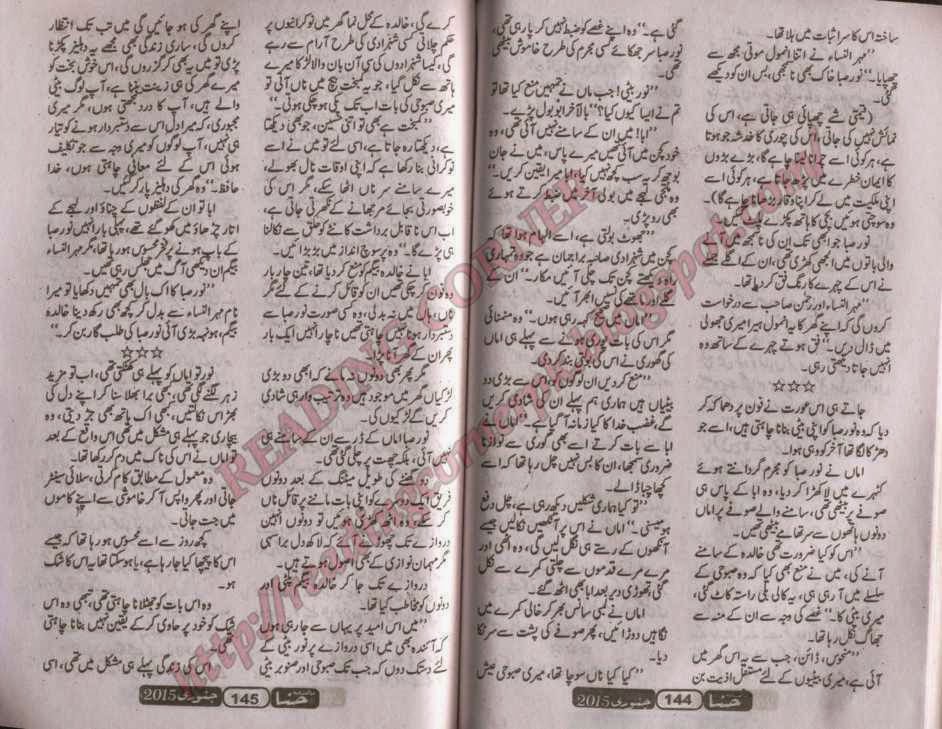 ساختہ اس کا سر اثبات میں ہلا تھا۔
”مہر النساء نے اتنا انمول موتی مجھ سے
چھپایا۔“ نور صبا خاک بھی نا سمجھی، بس ان کو دیکھے
گئی۔
(قیمتی شے چھپائی ہی جاتی ہے، اس کی
نمائش نہیں کی جاتی، اس کی چوری کا خدشہ جو ہوتا
ہے، ہر کوئی اسے چرا لینا چاہے گا، بڑے بڑوں
کا ایمان خطرے میں پڑ جاتا ہے، ہر کوئی اسے
اپنی ملکیت میں لے کر اپنا وقار بڑھانا چاہے گا)۔
وہ سوچتی ہوئیں بچی کا ہاتھ پکڑے پلٹی تھیں۔
نور صبا جو ابھی تک ان کی نا سمجھ میں آنے
والی باتوں میں الجھی کھڑی تھی، ان کے اگلے جملے
نے اس کے چہرے کا رنگ فق کر دیا تھا۔
”مہر النساء اور رحمٰن صاحب سے درخواست
کروں گی کہ اپنے گھر کا یہ انمول ہیرا میری جھولی
میں ڈال دیں۔“ فق ہوتے چہرے کے ساتھ وہ
انہیں جاتا دیکھتی رہی۔
☆☆☆
جاتے ہی اس عورت نے فون پر دھماکہ کر
دیا کہ وہ نور صبا کو اپنی بیٹی بنانا چاہتی ہیں، اسے جو
دھڑکا لگا تھا آخر کو وہی ہوا۔
اماں نے نور صبا کو مجرم گردانتے ہوئے
کٹہرے میں لا کھڑا کر دیا، وہ ابا کے پاس ہی
صوفے پر بیٹھی تھی، سامنے والے صوفے پر اماں
دونوں ہاتھوں سے سر تھامے بیٹھی تھیں۔
”اس کو کیا ضرورت تھی خالدہ کے سامنے
آنے کی، میں نے منع بھی کیا کہ وہ صبوحی کے
سلسلے میں آ رہی ہے، یہ کالی بلی راستہ کاٹ گئی،
میری بیٹی کا۔“ غصے کی وجہ سے ان کے منہ سے
جھاگ نکل رہا تھا۔
”منحوس، ڈائن، جب سے یہ اس گھر میں
آئی ہے، میری بیٹیوں کے لئے مستقل اذیت بن
گئی ہے۔“ وہ اپنے غصے کو ضبط نہیں کر پا رہی تھی،
نور صبا سر جھکائے کسی مجرم کی طرح خاموش بیٹھی
تھی۔
”نور بیٹی! جب ماں نے تمہیں منع کیا تھا تو
تم نے ایسا کیوں کیا؟“ بالآخر ابو بول پڑے۔
”ابا! میں ان کے سامنے نہیں آئی تھی، وہ
خود کچن میں آئی تھیں میرے پاس، میں نے جان
بوجھ کر یہ سب کچھ نہیں کیا، ابا میرا یقین کریں۔“
وہ ملتجی لہجے میں بولی آخر میں ضبط کرتے ہوئے
بھی رو پڑی۔
”جھوٹ بولتی ہے، اسے الہام ہوا تھا کہ
کچن میں شہزادی صاحبہ براجمان ہے جو وہ تمہاری
راہ دیکھتے کچن تک چلی آئیں مکار۔“ ان کے
گلے اور ماتھے کی نسیں ابھر آئیں۔
”اماں میں سچ کہہ رہی ہوں۔“ وہ منمنائی
مگر اس کی بات پوری ہونے سے پہلے ہی اماں
کی گھوری نے اس کی بولتی بند کر دی۔
”منع کر دیں ان لوگوں کو، اس سے بڑی دو
بیٹیاں ہیں ہماری ہم پہلے ان کی شادی کریں
گے، غضب خدا کا کیا زمانہ آ گیا ہے۔“ اماں نے
ابا سے بات کرتے اسے بھی گھوری سے نوازنا
ضروری سمجھا، ان کا بس نہیں چل رہا تھا کہ اسے
کچا چبا ڈالے۔
”تو کیا ہماری شکلیں دیکھ رہی ہے، چل دفع
ہو یہیں سے۔“ اماں نے اس پر آنکھیں نکالیں جیسے
آنکھوں کے رستے ہی نگل لیں گی، وہ اٹھی اور
مرے مرے قدموں سے چلتی کمرے سے نکل
گئی، تھوڑی دیر بعد ابا بھی اٹھ گئے۔
اماں نے لمبی سانس بھر کر خالی کمرے میں
نگاہیں دوڑائیں، پھر صوفے کی پشت سے سر ٹکا
دیا۔
”کیا کیا نہیں سوچا تھا، میری صبوحی عیش
حنا 144 جنوری 2015
کرے گی، خالدہ کے محل نما گھر میں نوکرانیوں پر
حکم چلاتی کسی شہزادی کی طرح آرام سے رہے
گی، کیسا شہزادوں کی سی آن بان والا لڑکا میرے
ہاتھ سے نکل گیا، جو یہ کمبخت بیچ میں ناں آتی تو
میری صبوحی کی بات اب تک پکی ہو چکی ہوتی۔“
”کمبخت ہے بھی تو اتنی حسین، جو بھی دیکھتا
ہے، دیکھتا رہ جاتا ہے، اسی لئے تو میں نے اسے
نوکرانی بنا رکھا ہے کہ اپنی اوقات ناں بھولے،
میرے سامنے سر ناں اٹھا سکے، مگر اس کی
خوبصورتی بجائے مرجھانے کے نکھرتی جاتی ہے،
اب اس نا قابل برداشت کانٹے کو حلق سے نکالنا
ہی پڑے گا۔“ وہ پر سوچ انداز میں بڑبڑائیں۔
ابا نے خالدہ بیگم کو منع کر دیا تھا، تین چار بار
وہ فون کر چکی تھیں ان کو قائل کرنے کے لئے مگر
ناں، ہاں میں نہ بدلی، وہ کسی صورت نور صبا سے
دستبردار ہونا نہیں چاہتی تھیں ناچار انہیں ایک بار
پھر ان کے گھر آنا پڑا۔
مگر پھر بھی دونوں نہ مانے کہ ابھی دو بڑی
لڑکیاں گھر میں موجود ہیں وہ ترتیب وار ہی شادی
کریں گے لڑکیوں کی۔
نور صبا اماں کے ڈر سے ان کے سامنے ہی
نہیں آئی، بلکہ چھت پر چلی گئی تھی۔
دو گھنٹے کی طویل میٹنگ کے بعد دونوں
فریق ایک دوسرے کو اپنی بات ماننے پر قائل ناں
کر سکے، وہ اٹھ کھڑی ہوئیں تو دونوں انہیں
دروازے تک چھوڑنے آئے کہ لاکھ دل برا سہی
مگر مہمان نوازی کے بھی اصول ہوتے ہیں۔
دروازے تک جا کر خالدہ بیگم پلٹی اور
دونوں کو مخاطب کیا تھا۔
”میں اس امید پر یہاں سے جا رہی ہوں
کہ آئندہ بھی میں اسی دروازے پر نور بیٹی کے
لئے دستک دوں کہ جب تک صبوحی اور صنوبر بیٹی
اپنے گھر کی ہو جائیں گی میں تب تک انتظار
کروں گی، ساری زندگی بھی مجھے یہ دہلیز پکڑنا
پڑی تو میں یہ بھی کر گزروں گی، اس خوش بخت کو
میرے گھر کی ہی زینت بننا ہے، آپ لوگ بیٹی
والے ہیں، آپ کا درد سمجھتی ہوں، مگر میری
مجبوری، کہ میرا دل اس سے دستبردار ہونے کو تیار
ہی نہیں، آپ لوگوں کو میری وجہ سے جو تکلیف
ہوئی اس کے لئے معافی چاہتی ہوں، خدا
حافظ۔“ وہ گھر کی دہلیز پار کر گئیں۔
ابا تو ان کے لفظوں کے چناؤ اور لہجے کے
اتار چڑھاؤ میں کھو گئے تھے، پہلی بار انہیں نور صبا
کے باپ ہونے پر فخر محسوس ہو رہا تھا، مگر مہر النساء
بیگم ان دیکھی آگ میں جھلس رہی تھیں۔
”نور صبا کا اک بال بھی تمہیں دکھایا تو میرا
نام مہر النساء سے بدل کر کچھ بھی رکھ دینا خالدہ
بیگم، ہونہہ بڑی آئی نور صبا کی طلب گار بن کر۔“
☆☆☆
نور تو اماں کو پہلے ہی کھٹکتی تھی، اب تو مزید
زہر لگنے لگی تھی، کبھی برا بھلا سنا کر اپنے دل کی
بھڑاس نکالتیں، کبھی اک ہاتھ بھی جڑ دیتی، وہ
بیچاری جو پہلے ہی مشکل میں تھی اس واقع کے بعد
تو اماں نے اس کی ناک میں دم کر رکھا تھا۔
وہ معمول کے مطابق کام کرتی، سلائی سینٹر
جاتی اور پھر واپس آ کر خاموشی سے اپنے کاموں
میں جت جاتی۔
کچھ روز سے اسے محسوس ہو رہا تھا کہ جیسے
اس کا پیچھا کیا جا رہا ہے، یا ہو سکتا تھا یہ اس کا شک
ہو۔
وہ اس بات کو جھٹلانا چاہتی تھی، تبھی وہ اس
شک کو خود پر حاوی کر کے یقین نہیں بنانا چاہتی
تھی۔
اس کی زندگی پہلے ہی مشکل میں تھی، اسی
حنا 145 جنوری 2015
READING CORNER
http://readingcornerpk.blogspot.com